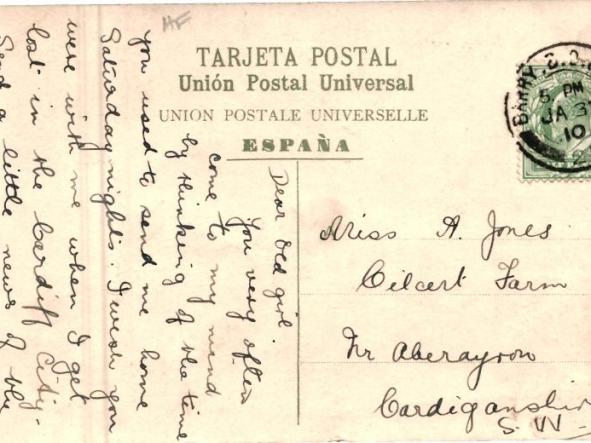 HF
TARJETA POSTAL
Unión Postal Universal
UNION POSTALE UNIVERSELLE
ESPAÑA
BARRY
5 PM
JA 31
10
Dear old girl.
You very often
come to my mind
by thinking of the time
you used to send me home
Saturday nights. I wish you
were with me when I get
lost in the Cardiff City.
Send a little news of the
Miss A. Jones
Cilcert Farm
Nr Aberayron
Cardiganshir
S. W-